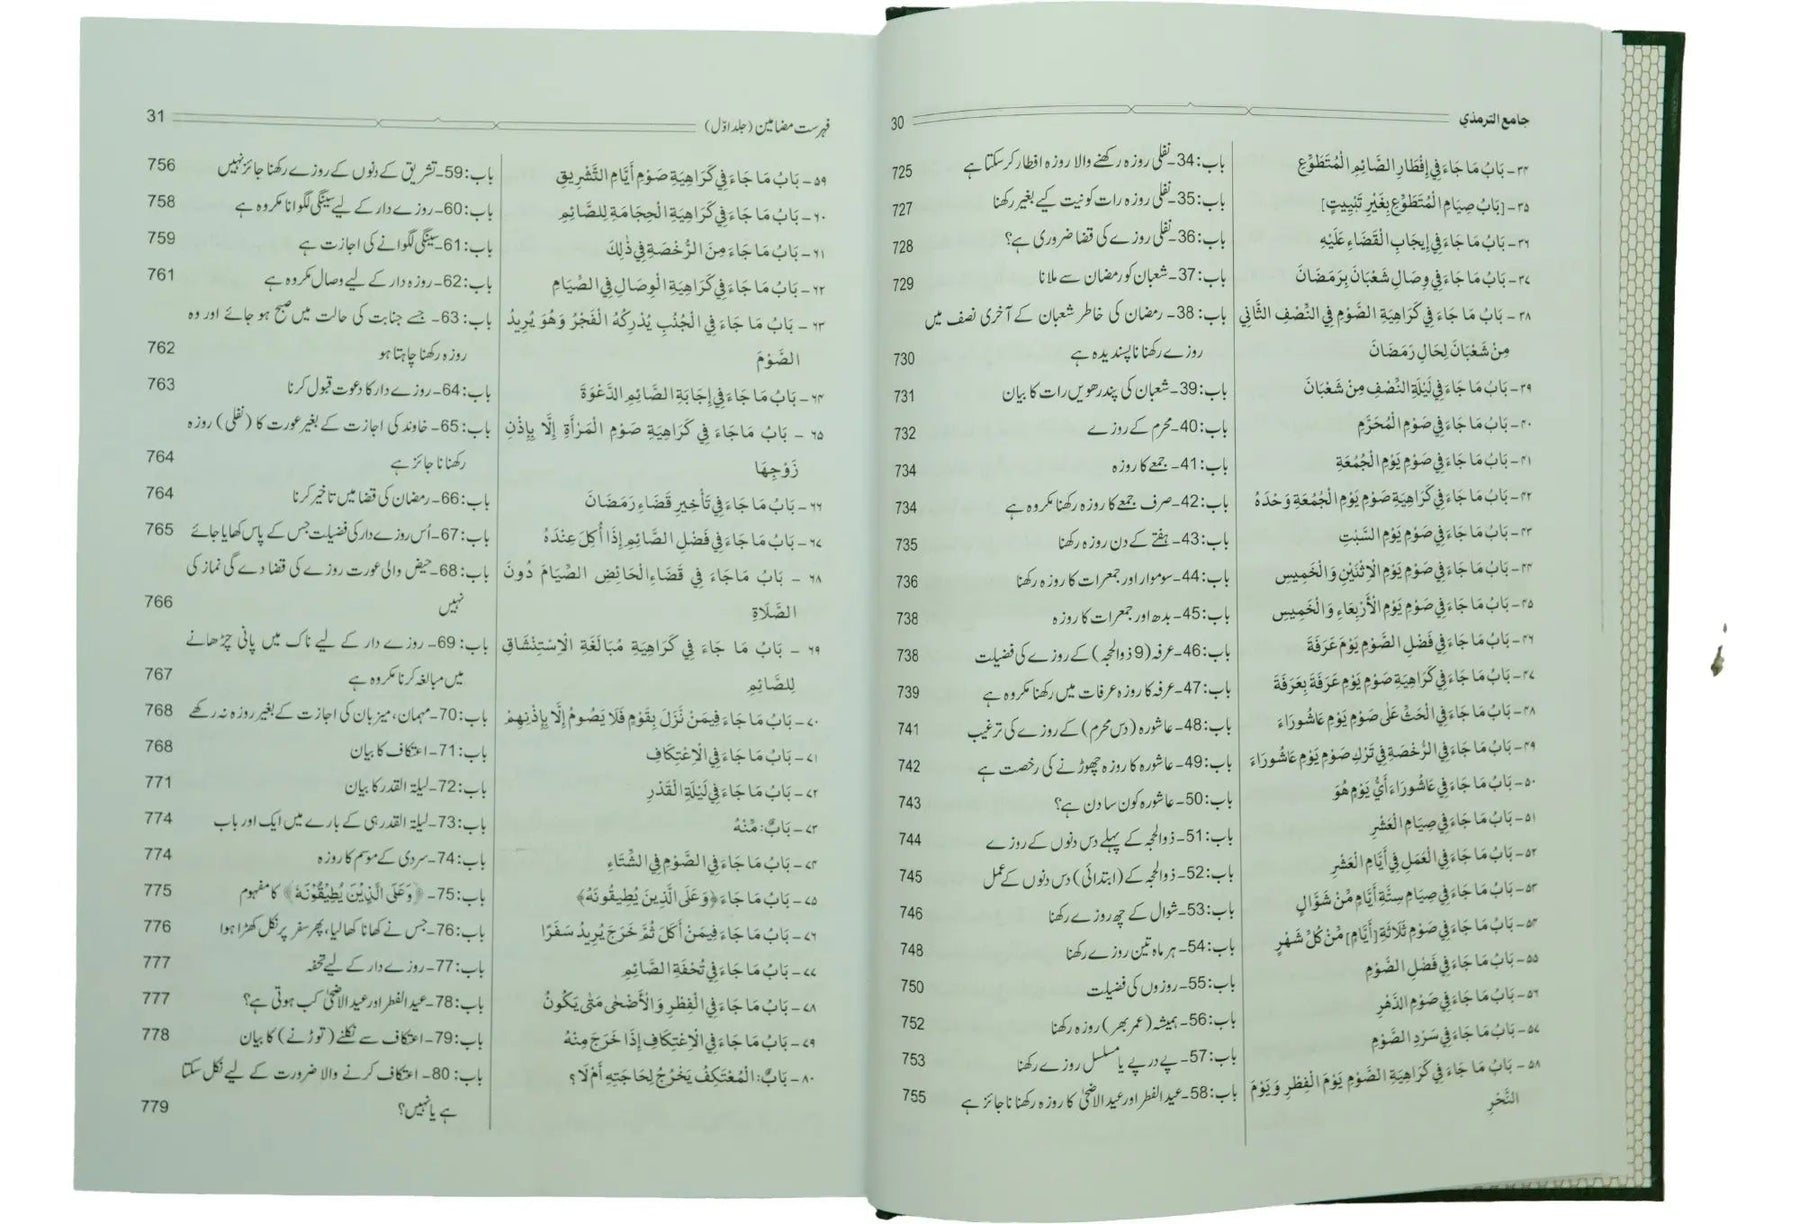 جامع الترمذي 30
۳۴ - بَابُ مَا جَاءَ فِي إِفْطَارِ الصَّائِمِ الْمُتَطَوِّعِ باب: 34- نفلی روزہ رکھنے والا روزہ افطار کر سکتا ہے 725
۳۵ - [بَابُ صِيَامِ الْمُتَطَوِّعِ بِغَيْرِ تَبْيِيتٍ] باب: 35- نفلی روزہ رات کو نیت کیے بغیر رکھنا 727
۳۶ - بَابُ مَا جَاءَ فِي إِيجَابِ الْقَضَاءِ عَلَيْهِ باب: 36- نفلی روزے کی قضا ضروری ہے؟ 728
۳۷ - بَابُ مَا جَاءَ فِي وِصَالِ شَعْبَانَ بِرَمَضَانَ باب: 37- شعبان کو رمضان سے ملانا 729
۳۸ - بَابُ مَا جَاءَ فِي كَرَاهِيَةِ الصَّوْمِ فِي النِّصْفِ الثَّانِي باب: 38- رمضان کی خاطر شعبان کے آخری نصف میں
مِنْ شَعْبَانَ لِحَالِ رَمَضَانَ روزے رکھنا ناپسندیدہ ہے 730
۳۹ - بَابُ مَا جَاءَ فِي لَيْلَةِ النِّصْفِ مِنْ شَعْبَانَ باب: 39- شعبان کی پندرھویں رات کا بیان 731
۴۰ - بَابُ مَا جَاءَ فِي صَوْمِ الْمُحَرَّمِ باب: 40- محرم کے روزے 732
۴۱ - بَابُ مَا جَاءَ فِي صَوْمِ يَوْمِ الْجُمُعَةِ باب: 41- جمعے کا روزہ 734
۴۲ - بَابُ مَا جَاءَ فِي كَرَاهِيَةِ صَوْمِ يَوْمِ الْجُمُعَةِ وَحْدَهُ باب: 42- صرف جمعے کا روزہ رکھنا مکروہ ہے 734
۴۳ - بَابُ مَا جَاءَ فِي صَوْمِ يَوْمِ السَّبْتِ باب: 43- ہفتے کے دن روزہ رکھنا 735
۴۴ - بَابُ مَا جَاءَ فِي صَوْمِ يَوْمِ الْاِثْنَيْنِ وَالْخَمِيسِ باب: 44- سوموار اور جمعرات کا روزہ رکھنا 736
۴۵ - بَابُ مَا جَاءَ فِي صَوْمِ يَوْمِ الْأَرْبِعَاءِ وَالْخَمِيسِ باب: 45- بدھ اور جمعرات کا روزہ 738
۴۶ - بَابُ مَا جَاءَ فِي فَضْلِ الصَّوْمِ يَوْمَ عَرَفَةَ باب: 46- عرفہ (9 ذوالحجہ) کے روزے کی فضیلت 738
۴۷ - بَابُ مَا جَاءَ فِي كَرَاهِيَةِ صَوْمِ يَوْمِ عَرَفَةَ بِعَرَفَةَ باب: 47- عرفہ کا روزہ عرفات میں رکھنا مکروہ ہے 739
۴۸ - بَابُ مَا جَاءَ فِي الْحَثِّ عَلٰى صَوْمِ يَوْمِ عَاشُورَاءَ باب: 48- عاشورہ (دس محرم) کے روزے کی ترغیب 741
۴۹ - بَابُ مَا جَاءَ فِي الرُّخْصَةِ فِي تَرْكِ صَوْمِ يَوْمِ عَاشُورَاءَ باب: 49- عاشورہ کا روزہ چھوڑنے کی رخصت ہے 742
۵۰ - بَابُ مَا جَاءَ فِي عَاشُورَاءَ أَيُّ يَوْمٍ هُوَ باب: 50- عاشورہ کون سا دن ہے؟ 743
۵۱ - بَابُ مَا جَاءَ فِي صِيَامِ الْعَشْرِ باب: 51- ذوالحجہ کے پہلے دس دنوں کے روزے 744
۵۲ - بَابُ مَا جَاءَ فِي الْعَمَلِ فِي أَيَّامِ الْعَشْرِ باب: 52- ذوالحجہ کے (ابتدائی) دس دنوں کے عمل 745
۵۳ - بَابُ مَا جَاءَ فِي صِيَامِ سِتَّةِ أَيَّامٍ مِّنْ شَوَّالٍ باب: 53- شوال کے چھ روزے رکھنا 746
۵۴ - بَابُ مَا جَاءَ فِي صَوْمِ ثَلَاثَةِ [أَيَّامٍ] مِّنْ كُلِّ شَهْرٍ باب: 54- ہر ماہ تین روزے رکھنا 748
۵۵ - بَابُ مَا جَاءَ فِي فَضْلِ الصَّوْمِ باب: 55- روزوں کی فضیلت 750
۵۶ - بَابُ مَا جَاءَ فِي صَوْمِ الدَّهْرِ باب: 56- ہمیشہ (عمر بھر) روزہ رکھنا 752
۵۷ - بَابُ مَا جَاءَ فِي سَرْدِ الصَّوْمِ باب: 57- پے در پے یا مسلسل روزے رکھنا 753
۵۸ - بَابُ مَا جَاءَ فِي كَرَاهِيَةِ الصَّوْمِ يَوْمَ الْفِطْرِ وَيَوْمَ باب: 58- عید الفطر اور عید الاضحیٰ کا روزہ رکھنا ناجائز ہے 755
النَّحْرِ
فہرست مضامین (جلد اوّل) 31
۵۹ - بَابُ مَا جَاءَ فِي كَرَاهِيَةِ صَوْمِ أَيَّامِ التَّشْرِيقِ باب: 59- تشریق کے دنوں کے روزے رکھنا جائز نہیں 756
۶۰ - بَابُ مَا جَاءَ فِي كَرَاهِيَةِ الْحِجَامَةِ لِلصَّائِمِ باب: 60- روزے دار کے لیے سینگی لگوانا مکروہ ہے 758
۶۱ - بَابُ مَا جَاءَ مِنَ الرُّخْصَةِ فِي ذٰلِكَ باب: 61- سینگی لگوانے کی اجازت ہے 759
۶۲ - بَابُ مَا جَاءَ فِي كَرَاهِيَةِ الْوِصَالِ فِي الصِّيَامِ باب: 62- روزہ دار کے لیے وصال مکروہ ہے 761
۶۳ - بَابُ مَا جَاءَ فِي الْجُنُبِ يُدْرِكُهُ الْفَجْرُ وَهُوَ يُرِيدُ باب: 63- جسے جنابت کی حالت میں صبح ہو جائے اور وہ
الصَّوْمَ روزہ رکھنا چاہتا ہو 762
۶۴ - بَابُ مَا جَاءَ فِي إِجَابَةِ الصَّائِمِ الدَّعْوَةَ باب: 64- روزے دار کا دعوت قبول کرنا 763
۶۵ - بَابُ مَا جَاءَ فِي كَرَاهِيَةِ صَوْمِ الْمَرْأَةِ إِلَّا بِإِذْنِ باب: 65- خاوند کی اجازت کے بغیر عورت کا (نفلی) روزہ
زَوْجِهَا رکھنا ناجائز ہے 764
۶۶ - بَابُ مَا جَاءَ فِي تَأْخِيرِ قَضَاءِ رَمَضَانَ باب: 66- رمضان کی قضا میں تاخیر کرنا 764
۶۷ - بَابُ مَا جَاءَ فِي فَضْلِ الصَّائِمِ إِذَا أُكِلَ عِنْدَهُ باب: 67- اُس روزے دار کی فضیلت جس کے پاس کھایا جائے 765
۶۸ - بَابُ مَا جَاءَ فِي قَضَاءِ الْحَائِضِ الصِّيَامَ دُونَ باب: 68- حیض والی عورت روزے کی قضا دے گی نماز کی
الصَّلَاةِ نہیں 766
۶۹ - بَابُ مَا جَاءَ فِي كَرَاهِيَةِ مُبَالَغَةِ الْاِسْتِنْشَاقِ باب: 69- روزے دار کے لیے ناک میں پانی چڑھانے
لِلصَّائِمِ میں مبالغہ کرنا مکروہ ہے 767
۷۰ - بَابُ مَا جَاءَ فِيمَنْ نَزَلَ بِقَوْمٍ فَلَا يَصُومُ إِلَّا بِإِذْنِهِمْ باب: 70- مہمان، میزبان کی اجازت کے بغیر روزہ نہ رکھے 768
۷۱ - بَابُ مَا جَاءَ فِي الْاِعْتِكَافِ باب: 71- اعتکاف کا بیان 768
۷۲ - بَابُ مَا جَاءَ فِي لَيْلَةِ الْقَدْرِ باب: 72- لیلۃ القدر کا بیان 771
۷۳ - بَابٌ: مِّنْهُ باب: 73- لیلۃ القدر ہی کے بارے میں ایک اور باب 774
۷۴ - بَابُ مَا جَاءَ فِي الصَّوْمِ فِي الشِّتَاءِ باب: 74- سردی کے موسم کا روزہ 774
۷۵ - بَابُ مَا جَاءَ ﴿وَعَلَى الَّذِينَ يُطِيقُونَهُ﴾ باب: 75- ﴿وَعَلَى الَّذِيْنَ يُطِيْقُوْنَهٗ﴾ کا مفہوم 775
۷۶ - بَابُ مَا جَاءَ فِيمَنْ أَكَلَ ثُمَّ خَرَجَ يُرِيدُ سَفَرًا باب: 76- جس نے کھانا کھا لیا، پھر سفر پر نکل کھڑا ہوا 776
۷۷ - بَابُ مَا جَاءَ فِي تُحْفَةِ الصَّائِمِ باب: 77- روزے دار کے لیے تحفہ 777
۷۸ - بَابُ مَا جَاءَ فِي الْفِطْرِ وَالْأَضْحٰى مَتٰى يَكُونُ باب: 78- عید الفطر اور عید الاضحیٰ کب ہوتی ہے؟ 777
۷۹ - بَابُ مَا جَاءَ فِي الْاِعْتِكَافِ إِذَا خَرَجَ مِنْهُ باب: 79- اعتکاف سے نکلنے (توڑنے) کا بیان 778
۸۰ - بَابٌ: الْمُعْتَكِفُ يَخْرُجُ لِحَاجَتِهِ أَمْ لَا؟ باب: 80- اعتکاف کرنے والا ضرورت کے لیے نکل سکتا
ہے یا نہیں؟ 779